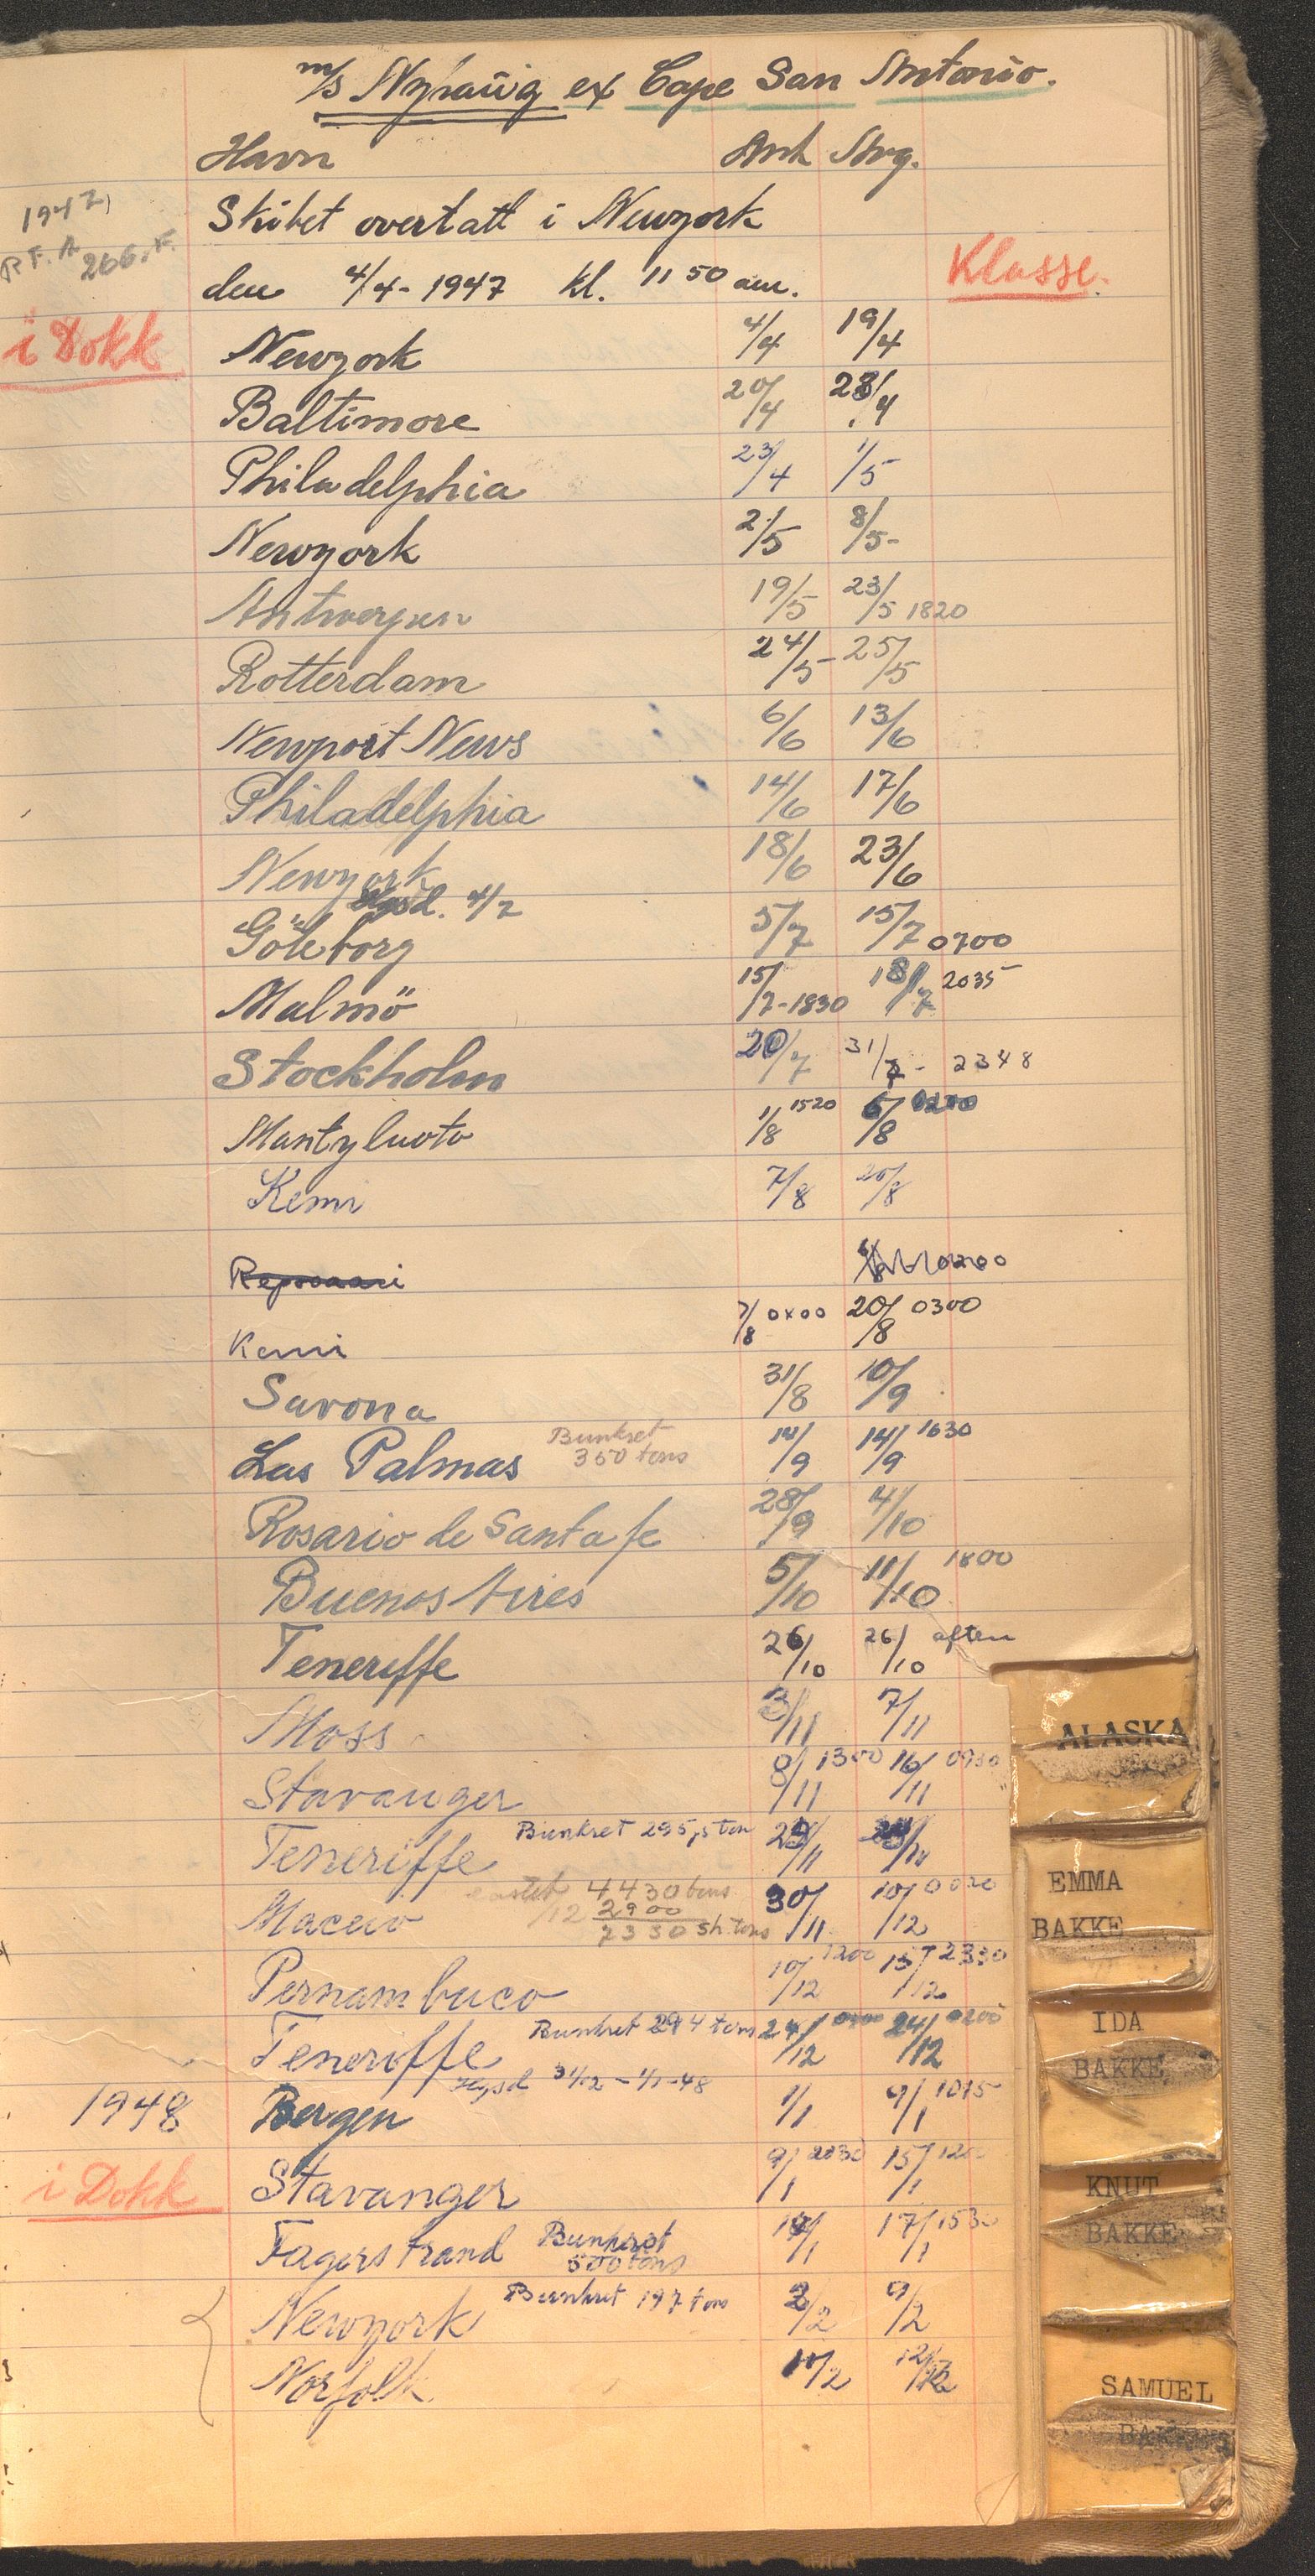 m/s Nyhaug ex Cape San Antonio.
Havn Ank Avg.
1947,
Skibet overtatt i Newyork
R F. A 266. F.
den 4/4 - 1947 kl. 11 50 am.
Klasse.
i Dokk
Newyork 4/4 19/4
Baltimore 20/4 23/4
Philadelphia 23/4 1/5
Newyork 2/5 8/5-
Antwerpen 19/5 23/5 1820
Rotterdam 24/5 - 25/5
Newport News 6/6 13/6
Philadelphia 14/6 17/6
Newyork 18/6 23/6
4/7
Göteborg 5/7 15/7 0700
Malmö 15/7 - 1830 18/7 2035
Stockholm 20/7 31/7 - 2348
Mantyluoto 1/8 1520 6/8
Kemi 7/8 20/8
Reposaari 0200
Kemi 7/8 20/8 0300
Savona 31/8 10/9
Las Palmas Bunkret 350 tons 14/9 14/9 1630
Rosario de Santa fe 28/9 4/10
Buenos Aires 5/10 11/10 1800
Teneriffe 26/10 26/10 aften
Moss 3/11 7/11
Stavanger 8/11 1300 16/11 0930
Teneriffe Bunkret 295,5 ton 23/11
Maceio 30/11 10/12
4430 tons
2900
7330 sh. tons
Pernambuco 10/12 1200 15/12 2330
Teneriffe Bunkret 294 tons 24/12 24/12 0200
31/12 - 1/1-48
1948 Bergen 1/1 9/1 1015
i Dokk
Stavanger 9/1 2030 15/1
Fagerstrand Bunkret 500 tons 17/1 1530
Newyork Bunkret 197 tons 2/2 9/2
Norfolk 10/2
ALASKA
EMMA
BAKKE
IDA
BAKKE
KNUT
BAKKE
SAMUEL
BAKKE